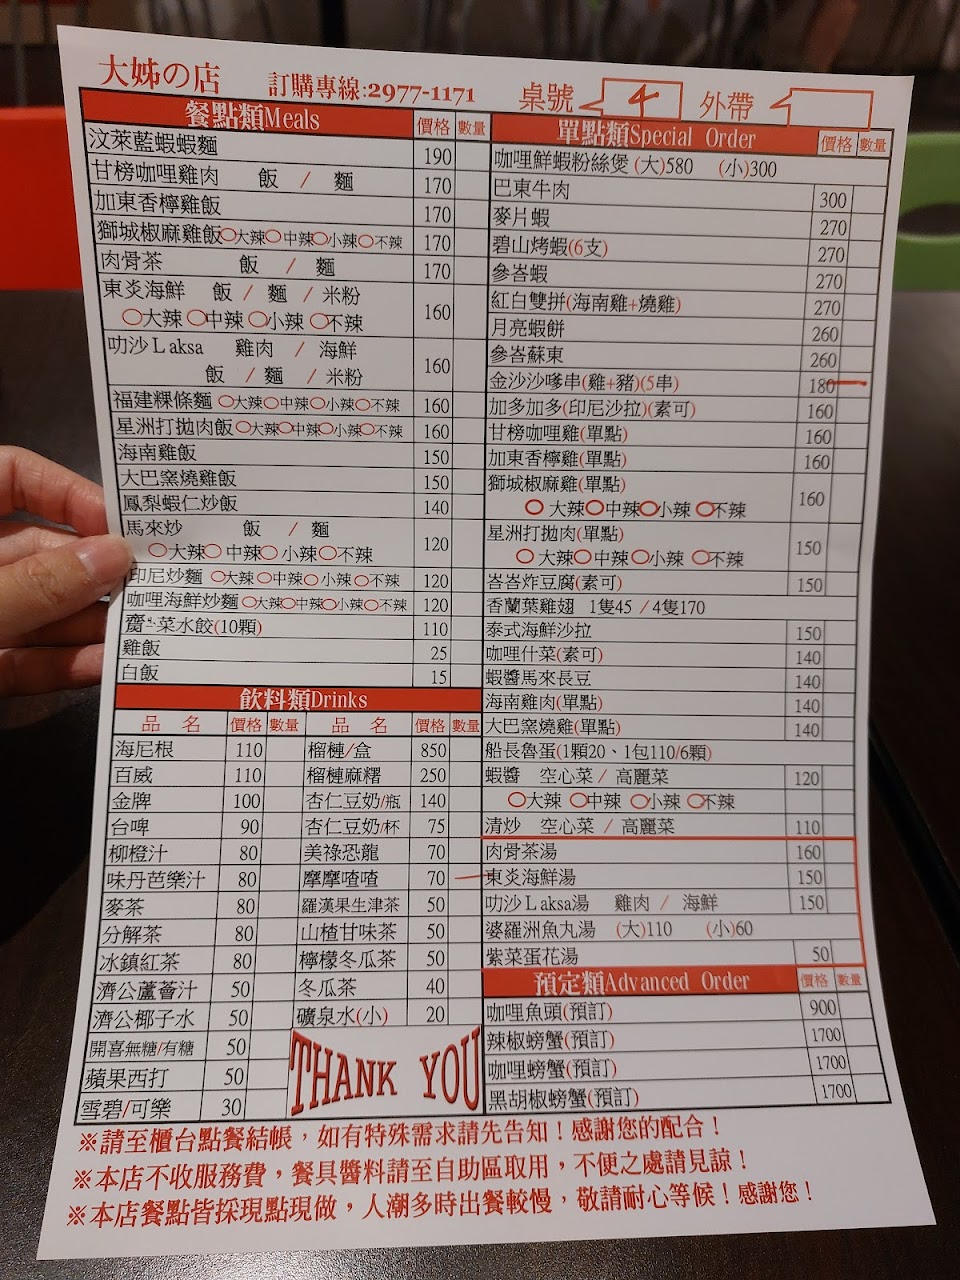 大姊の店 訂購專線:2977-1171 桌號 4 外帶
餐點類Meals 價格 數量
汶萊藍蝦蝦麵 190
甘榜咖哩雞肉 飯 / 麵 170
加東香檸雞飯 170
獅城椒麻雞飯○大辣○中辣○小辣○不辣 170
肉骨茶 飯 / 麵 170
東炎海鮮 飯 / 麵 / 米粉 160
○大辣 ○中辣 ○小辣 ○不辣
叻沙Laksa 雞肉 / 海鮮 160
飯 / 麵 / 米粉
福建粿條麵 ○大辣○中辣○小辣○不辣 160
星洲打拋肉飯○大辣○中辣○小辣○不辣 160
海南雞飯 150
大巴窯燒雞飯 150
鳳梨蝦仁炒飯 140
馬來炒 飯 / 麵 120
○大辣○中辣○小辣○不辣
印尼炒麵 ○大辣○中辣○小辣○不辣 120
咖哩海鮮炒麵 ○大辣○中辣○小辣○不辣 120
菜水餃(10顆) 110
雞飯 25
白飯 15
飲料類Drinks
品 名 價格 數量 品 名 價格 數量
海尼根 110 榴槤/盒 850
百威 110 榴槤麻糬 250
金牌 100 杏仁豆奶/瓶 140
台啤 90 杏仁豆奶/杯 75
柳橙汁 80 美祿恐龍 70
味丹芭樂汁 80 摩摩喳喳 70
麥茶 80 羅漢果生津茶 50
分解茶 80 山楂甘味茶 50
冰鎮紅茶 80 檸檬冬瓜茶 50
濟公蘆薈汁 50 冬瓜茶 40
濟公椰子水 50 礦泉水(小) 20
開喜無糖/有糖 50
蘋果西打 50
雪碧/可樂 30
THANK YOU
單點類Special Order 價格 數量
咖哩鮮蝦粉絲煲 (大)580 (小)300
巴東牛肉 300
麥片蝦 270
碧山烤蝦(6支) 270
參峇蝦 270
紅白雙拼(海南雞+燒雞) 270
月亮蝦餅 260
參峇蘇東 260
金沙沙嗲串(雞+豬)(5串) 180
加多加多(印尼沙拉)(素可) 160
甘榜咖哩雞(單點) 160
加東香檸雞(單點) 160
獅城椒麻雞(單點) 160
○大辣○中辣○小辣 ○不辣
星洲打拋肉(單點) 150
○大辣○中辣○小辣 ○不辣
峇峇炸豆腐(素可) 150
香蘭葉雞翅 1隻45 / 4隻170
泰式海鮮沙拉 150
咖哩什菜(素可) 140
蝦醬馬來長豆 140
海南雞肉(單點) 140
大巴窯燒雞(單點) 140
船長魯蛋(1顆20、1包110/6顆)
蝦醬 空心菜 / 高麗菜 120
○大辣 ○中辣 ○小辣 ○不辣
清炒 空心菜 / 高麗菜 110
肉骨茶湯 160
東炎海鮮湯 150
叻沙Laksa湯 雞肉 / 海鮮 150
婆羅洲魚丸湯 (大)110 (小)60
紫菜蛋花湯 50
預定類Advanced Order 價格 數量
咖哩魚頭(預訂) 900
辣椒螃蟹(預訂) 1700
咖哩螃蟹(預訂) 1700
黑胡椒螃蟹(預訂) 1700
※請至櫃台點餐結帳，如有特殊需求請先告知！感謝您的配合！
※本店不收服務費，餐具醬料請至自助區取用，不便之處請見諒！
※本店餐點皆採現點現做，人潮多時出餐較慢，敬請耐心等候！感謝您！